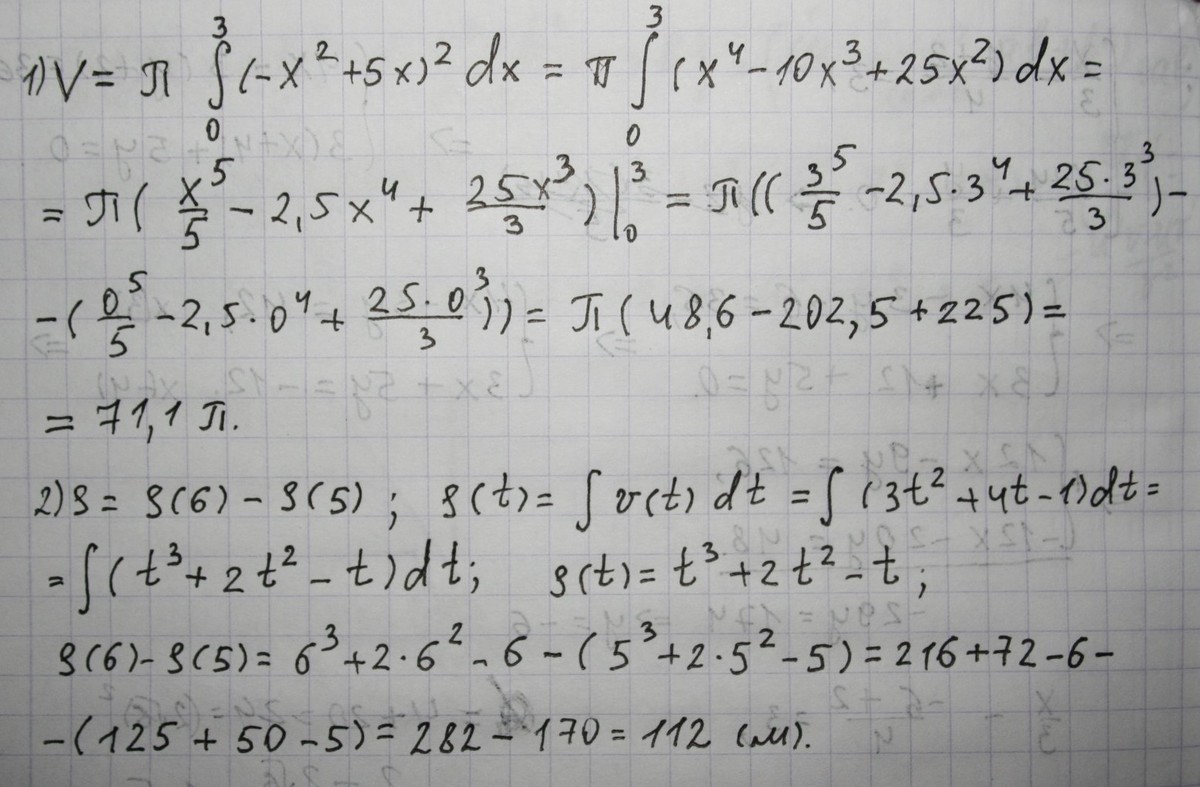 1) V = π ∫₀³ (-x² + 5x)² dx = π ∫₀³ (x⁴ - 10x³ + 25x²) dx =
= π( x⁵/5 - 2,5x⁴ + 25x³/3 )|₀³ = π(( 3⁵/5 - 2,5·3⁴ + 25·3³/3 ) -
- ( 0⁵/5 - 2,5·0⁴ + 25·0³/3 )) = π( 48,6 - 202,5 + 225) =
= 71,1 π.
2) S = S(6) - S(5) ; S(t) = ∫ v(t) dt = ∫ (3t² + 4t - 1)dt =
= ∫ (t³ + 2t² - t)dt; S(t) = t³ + 2t² - t ;
S(6) - S(5) = 6³ + 2·6² - 6 - (5³ + 2·5² - 5) = 216 + 72 - 6 -
- (125 + 50 - 5) = 282 - 170 = 112 (м).